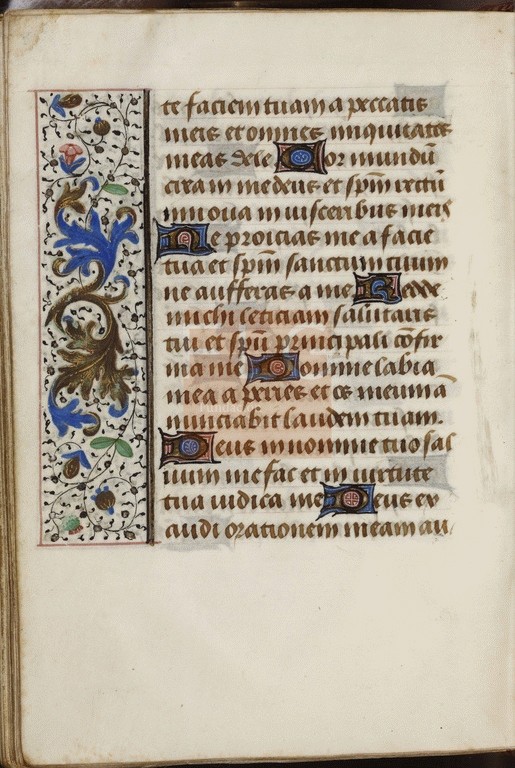 te faciem tuam a peccatis
meis et omnes iniquitates
meas dele Cor mundū
crea in me deus et sp̄m rectū
innoua in uisceribus meis
Ne proicias me a facie
tua et sp̄m sanctum tuum
ne aufferas a me Redde
michi leticiam salutaris
tui et spū principali cōfir
ma me Domine labia
mea aperies et os meum a
nunciabit laudem tuam.
Deus in nomine tuo sal
uum me fac et in uirtute
tua iudica me Deus ex
audi orationem meam au